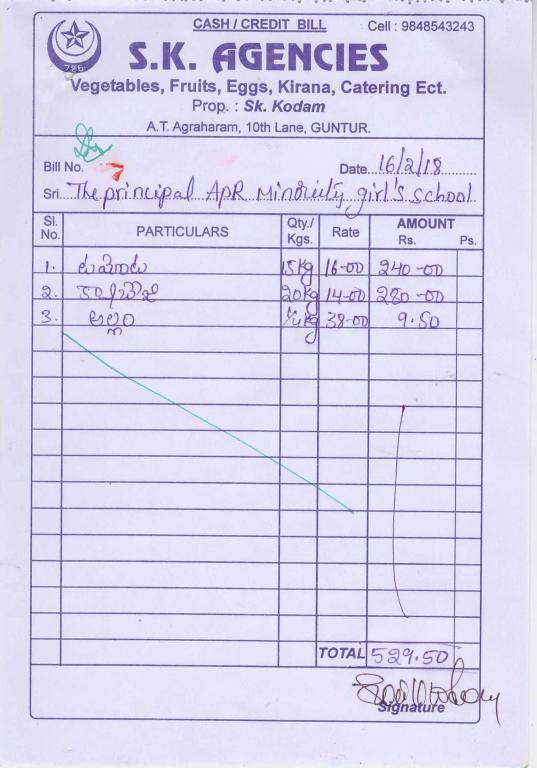 CASH / CREDIT BILL Cell : 9848543243
786
S.K. AGENCIES
Vegetables, Fruits, Eggs, Kirana, Catering Ect.
Prop. : Sk. Kodam
A.T. Agraharam, 10th Lane, GUNTUR.
Bill No. 7 Date 16/2/18
Sri. The principal APR Minority girl's school
Sl. No. PARTICULARS Qty./ Kgs. Rate AMOUNT Rs. Ps.
1. టమాటో 15kg 16-00 240-00
2. 20kg 14-00 280-00
3. అల్లం 1/4kg 38-00 9.50
TOTAL 529.50
Signature